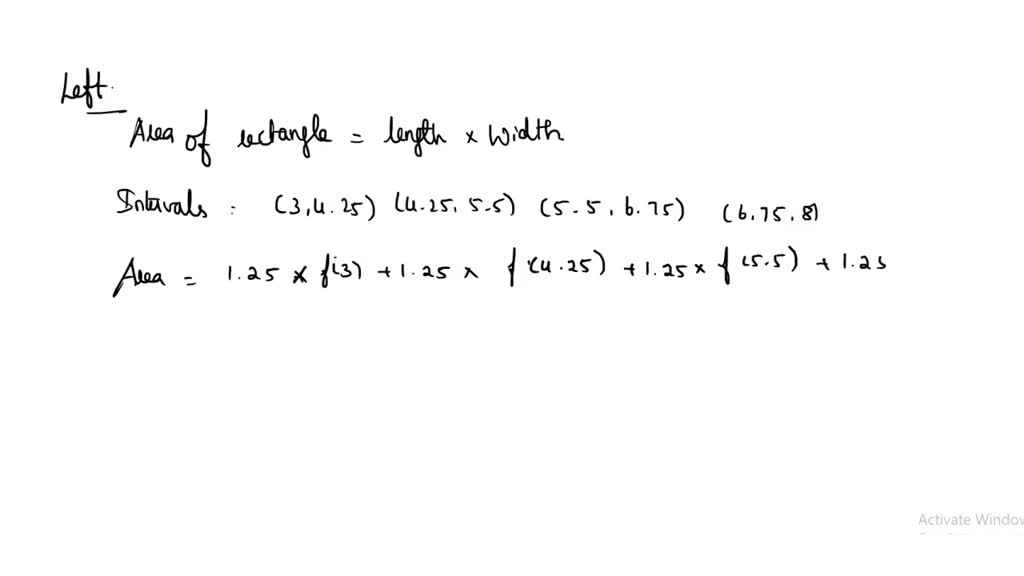 Left.
Area of rectangle = length × width
Intervals : (3,4.25) (4.25, 5.5) (5.5, 6.75) (6.75,8)
Area = 1.25 × f(3) + 1.25 × f(4.25) + 1.25 × f(5.5) + 1.25
Activate Window